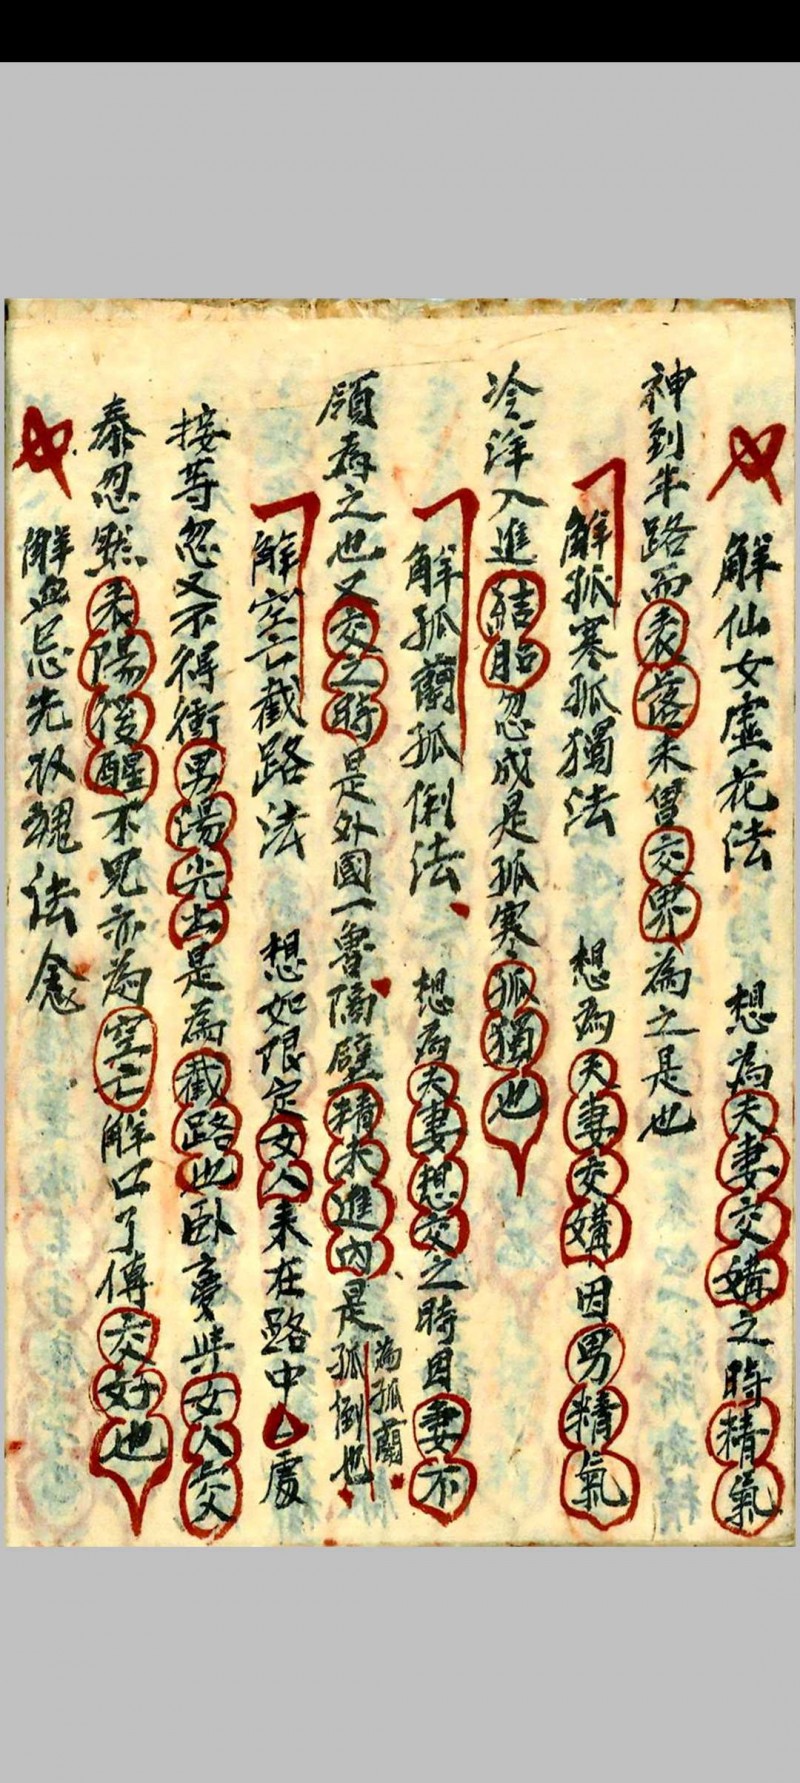 解仙女虛花法 想為夫妻交媾之時精氣
神到半路而表落未曾交界為之是也
解孤寒孤獨法 想為夫妻交媾因男精氣
冷洋入進結胎忽成是孤寒孤獨也
解孤蘭孤倒法 想為夫妻想交之時因妻不
領為之也又交之時是外國一魯隔壁精未進內是為孤蘭孤倒也
解空亡截路法 想如限定女人来在路中 處
接等忽又不得衝男陽先出是為截路也卧臺与女人交
泰忽然表陽後醒不見亦為空亡解口了傳交好也
解血忌先收魂法念